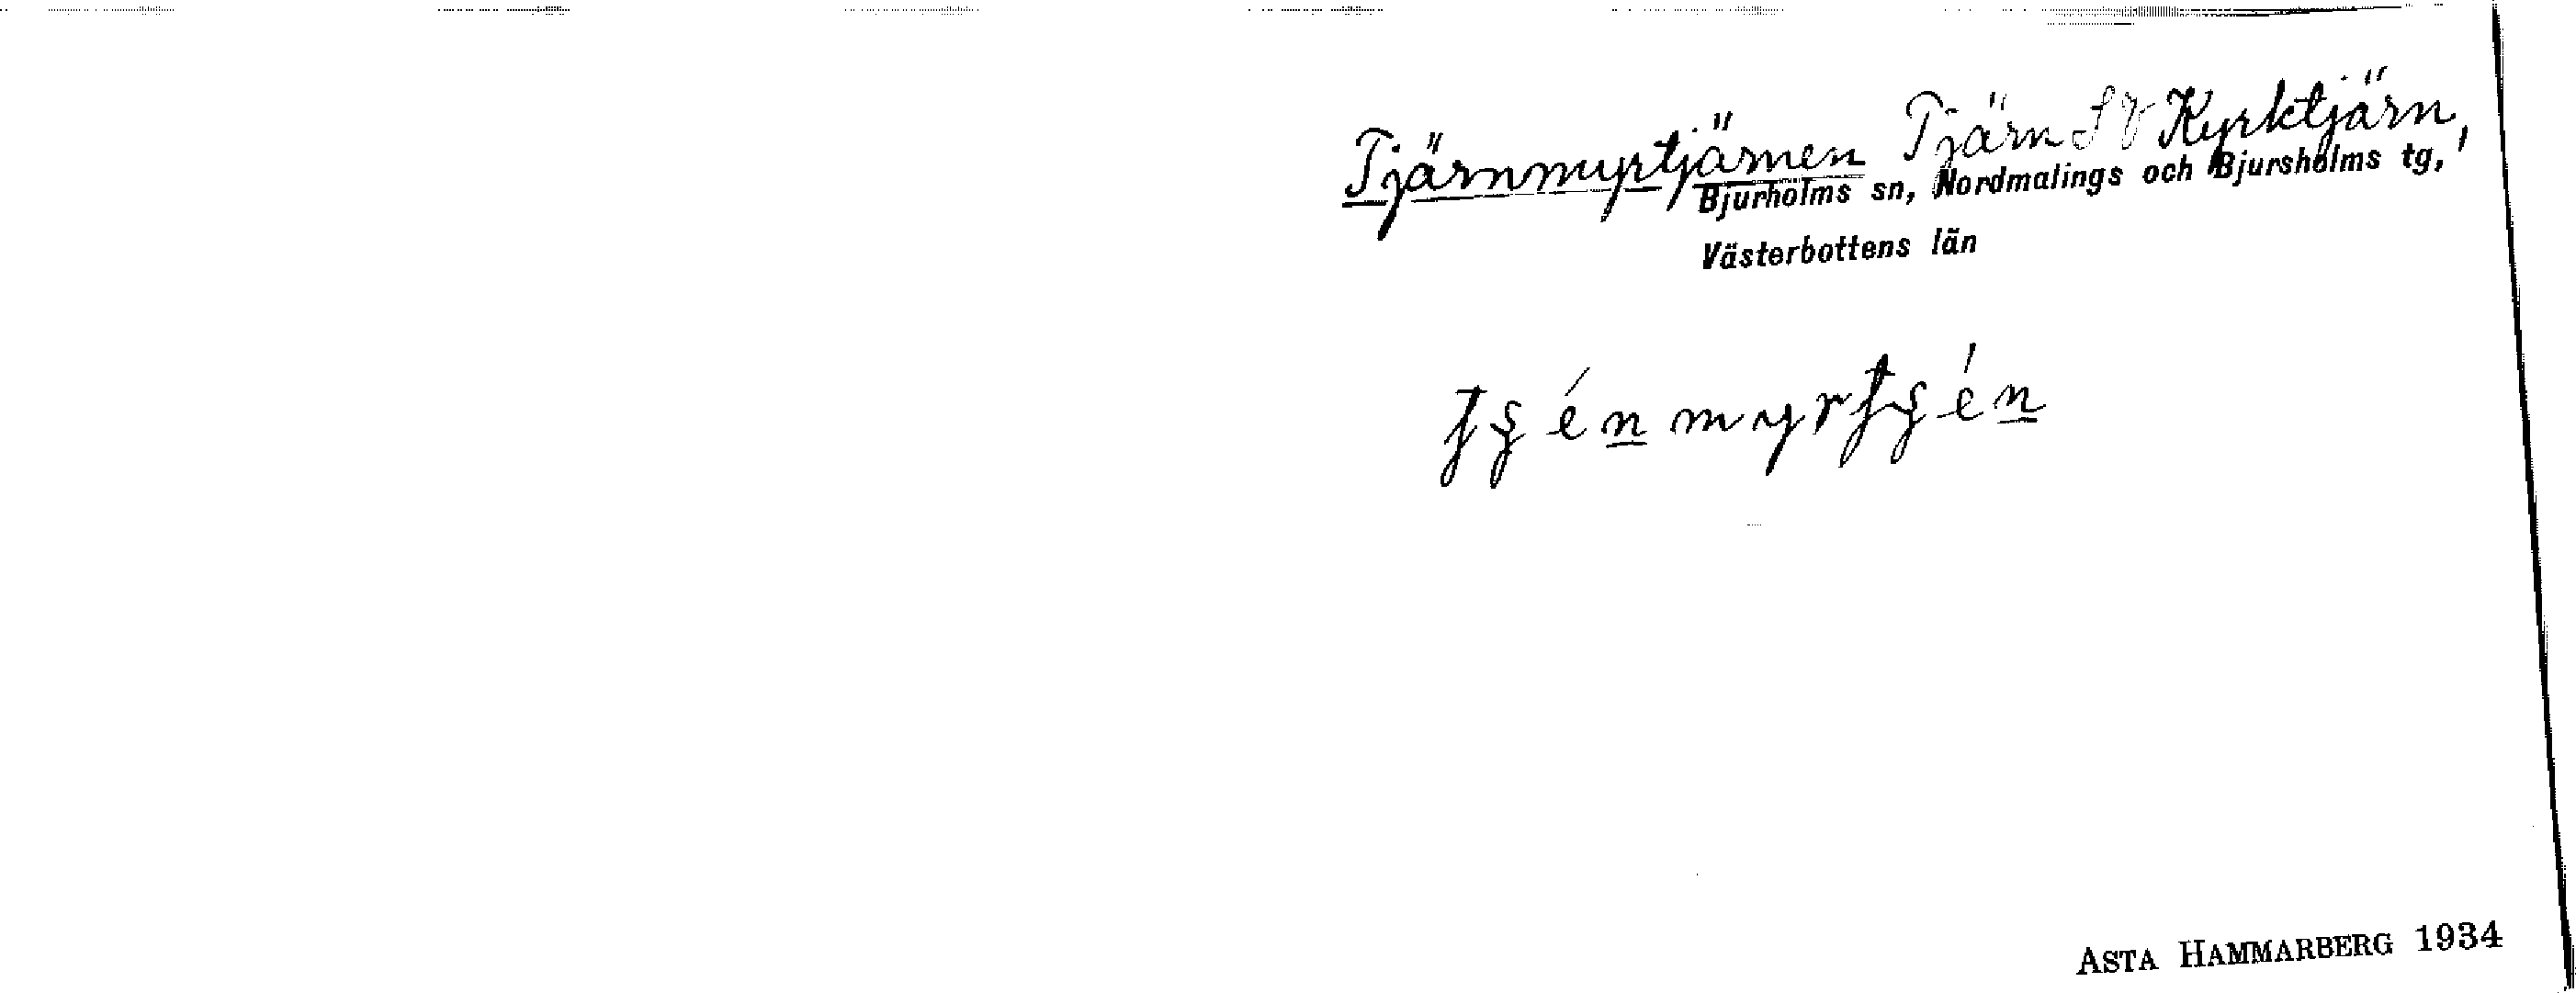 Tjärnmyrtjärnen Tjärn SV Kyrktjärn,
Bjurholms sn, Nordmalings och Bjursholms tg,
Västerbottens län
ASTA HAMMARBERG 1934